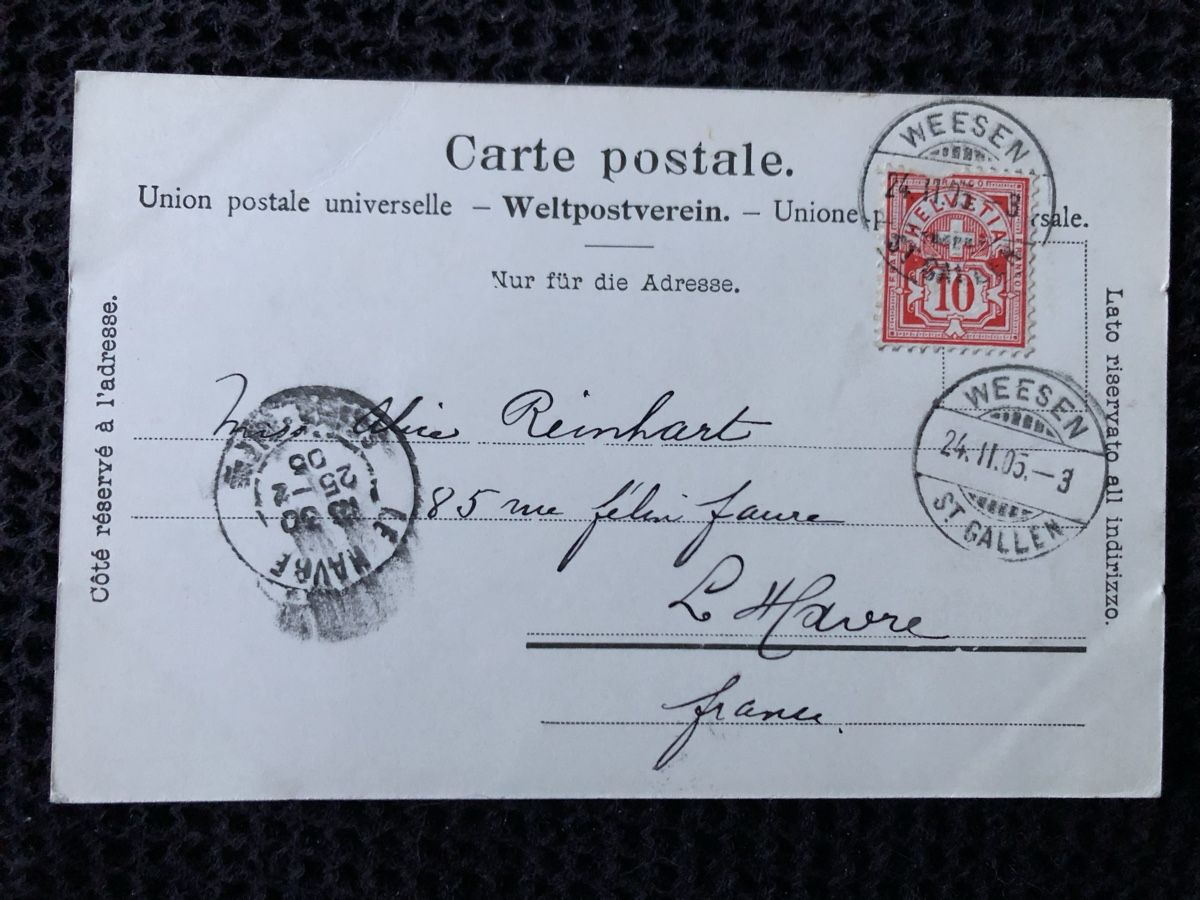 Carte postale.
Union postale universelle – Weltpostverein. – Unione p rsale.
Nur für die Adresse.
Côté réservé à l'adresse.
Lato riservato all indirizzo.
WEESEN
24.II.05.–3
ST GALLEN
HELVETIA
10
WEESEN
24.II.05.–3
ST GALLEN
Miss. Alice Reinhart
85 rue félix faure
L Havre
france.
LE HAVRE
30
25 -2
05